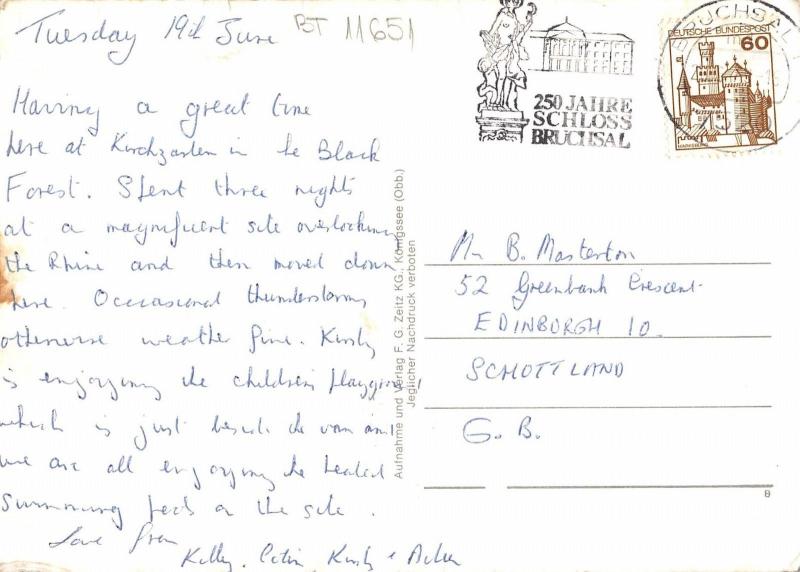 Tuesday 19th June
BT 11651
Having a great time
here at Kirchzarten in the Black
Forest. Spent three nights
at a magnificent site overlooking
the Rhine and then moved down
here. Occasional thunderstorms
otherwise weather fine. Kirsty
is enjoying the children's playground
which is just beside the van and
we are all enjoying the heated
swimming pools on the site.
Love from
Kirsty &
250 JAHRE
SCHLOSS
BRUCHSAL
BRUCHSAL
DEUTSCHE BUNDESPOST
60
MARKSBURG
Aufnahme und Verlag F. G. Zeitz KG., Königssee (Obb.)
Jeglicher Nachdruck verboten
Mr B. Masterton
52 Greenbank Crescent
EDINBURGH 10.
SCHOTTLAND
G. B.
8